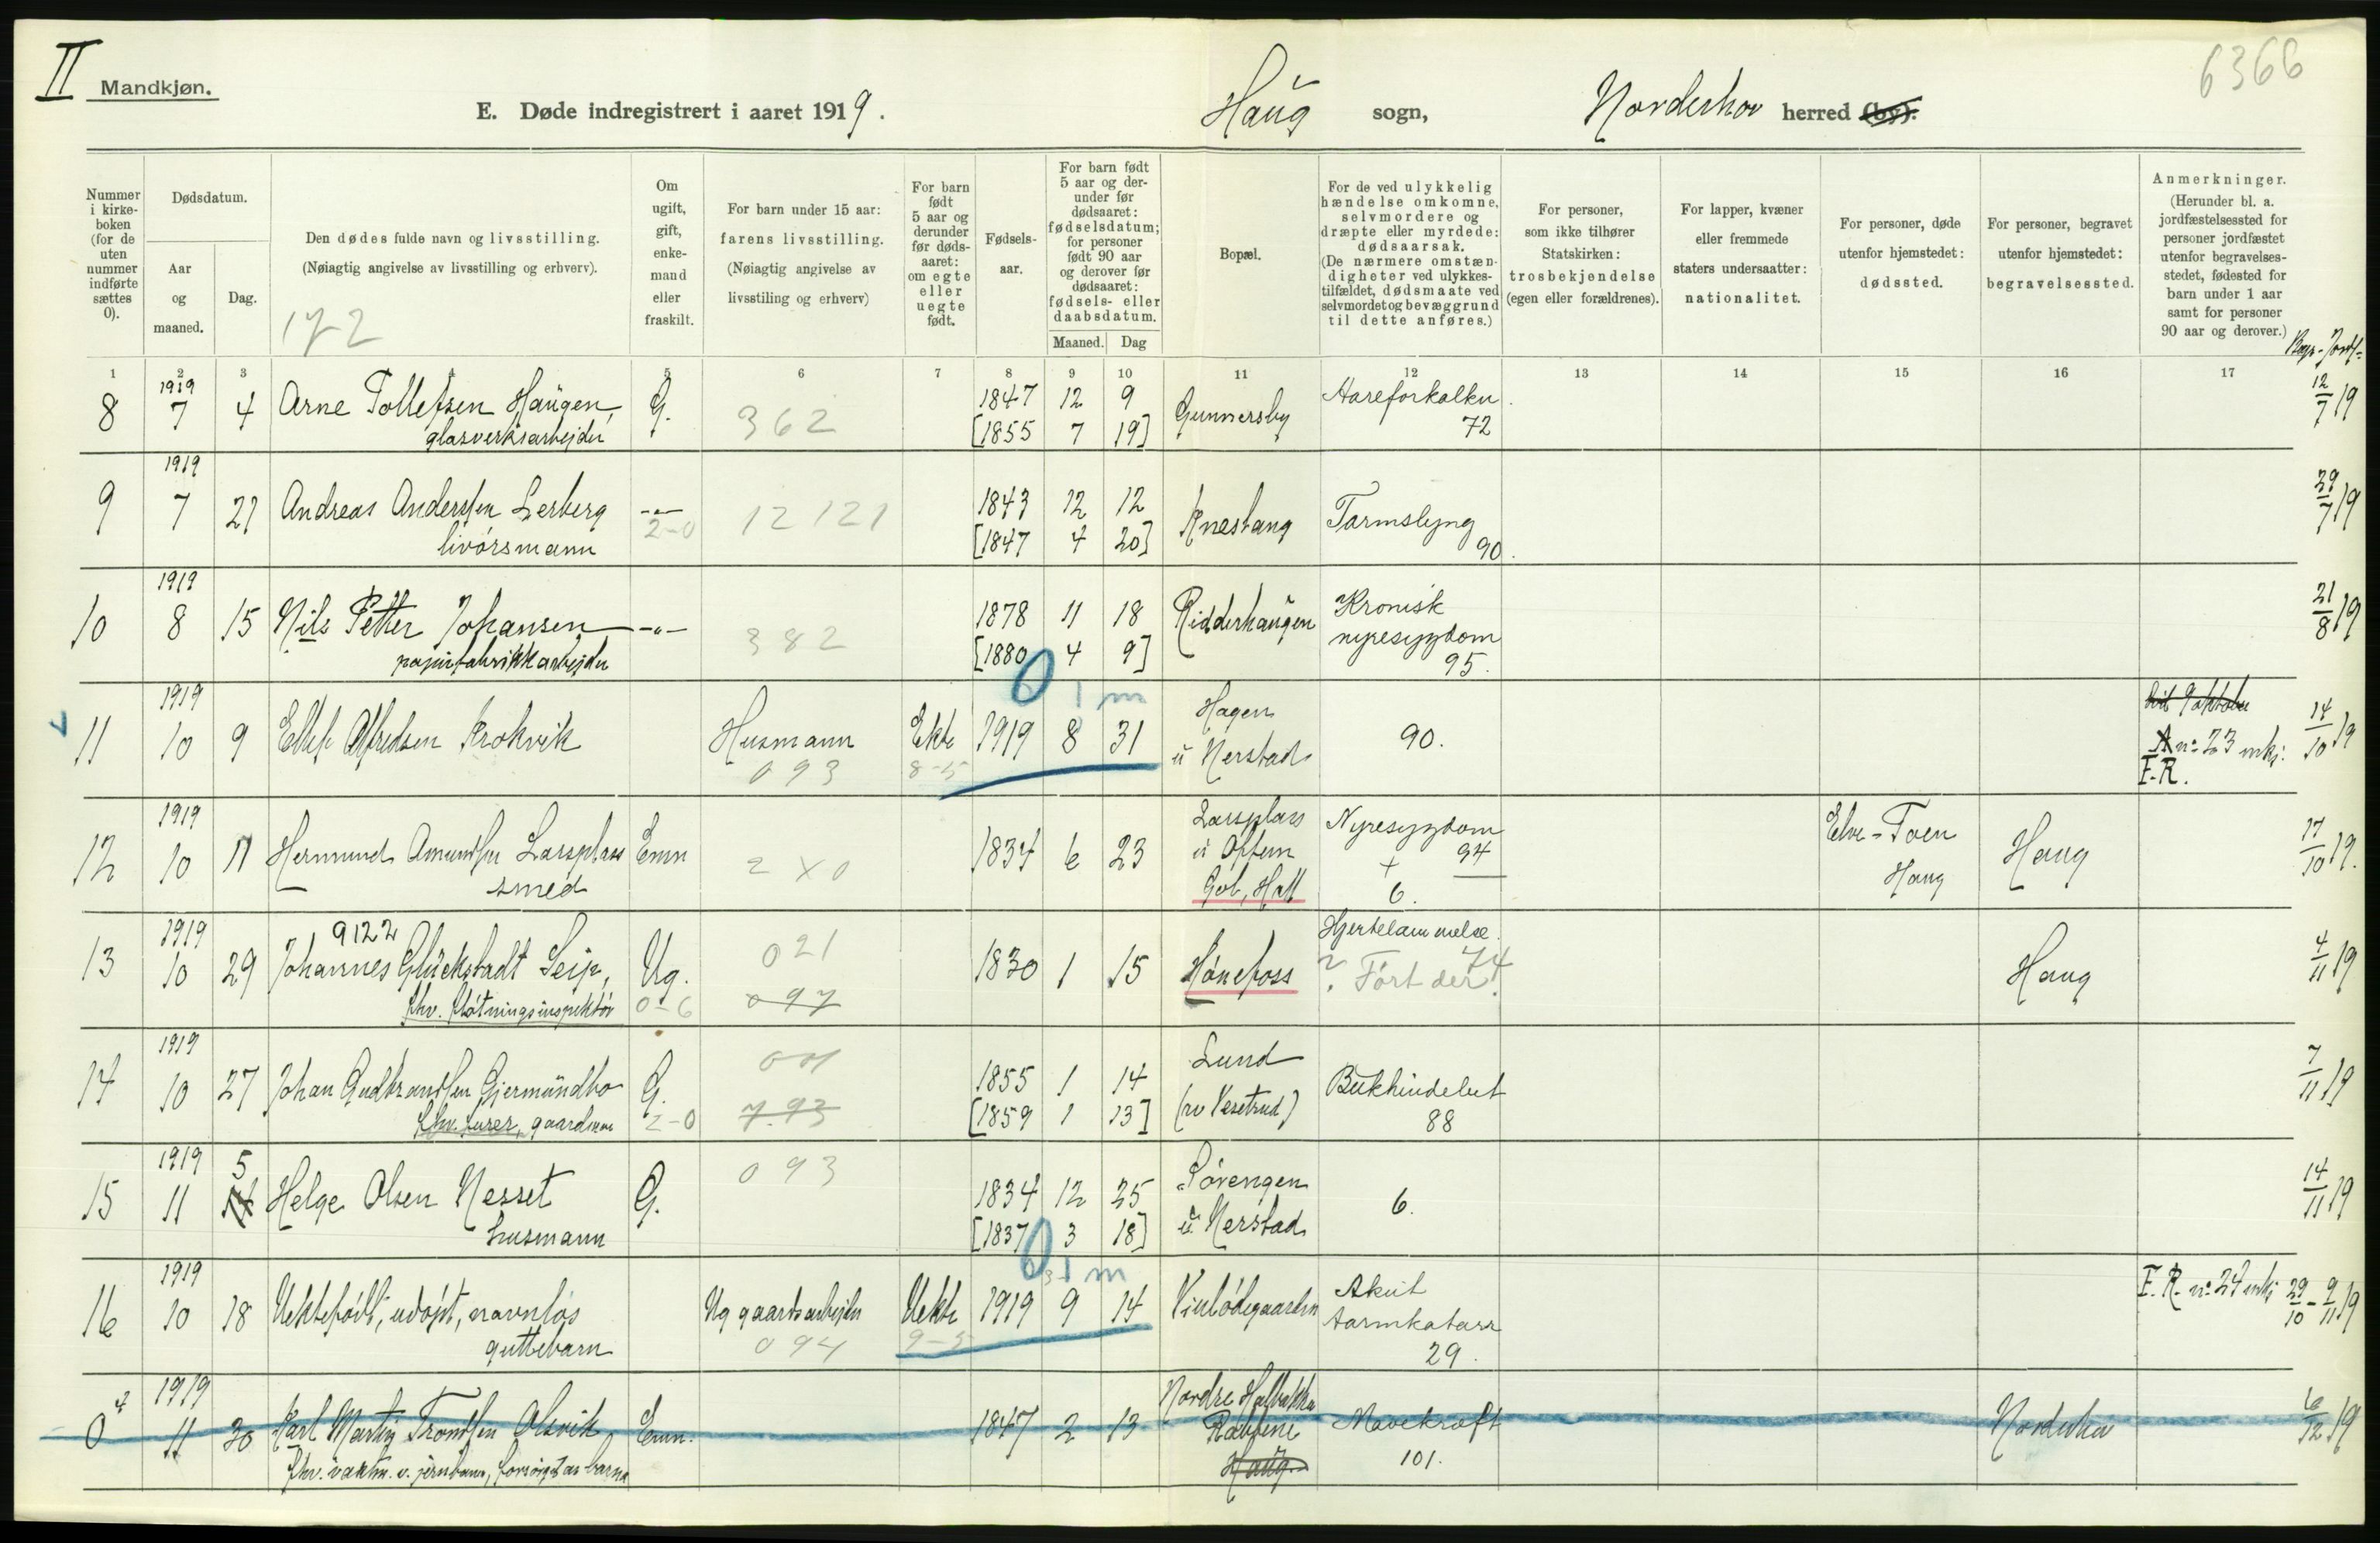 II Mandkjøn.
6366
E. Døde indregistrert i aaret 1919.
Haug sogn,
Norderhov herred (by).
Nummer i kirkeboken (for de uten nummer indførte sættes 0).
Dødsdatum.
Aar og maaned.
Dag.
Den dødes fulde navn og livsstilling.
(Nøiagtig angivelse av livsstilling og erhverv).
172
Om ugift, gift, enkemand eller fraskilt.
For barn under 15 aar:
farens livsstilling.
(Nøiagtig angivelse av livsstiling og erhverv)
For barn født 5 aar og derunder før dødsaaret: om egte eller uegte født.
Fødselsaar.
For barn født 5 aar og derunder før dødsaaret: fødselsdatum; for personer født 90 aar og derover før dødsaaret: fødsels- eller daabsdatum.
Maaned. Dag
Bopæl.
For de ved ulykkelig hændelse omkomne, selvmordere og dræpte eller myrdede: dødsaarsak.
(De nærmere omstændigheter ved ulykkestilfældet, dødsmaate ved selvmordet og bevæggrund til dette anføres.)
For personer, som ikke tilhører Statskirken: trosbekjendelse (egen eller forældrenes).
For lapper, kvæner eller fremmede staters undersaatter: nationalitet.
For personer, døde utenfor hjemstedet: dødssted.
For personer, begravet utenfor hjemstedet: begravelsessted.
Anmerkninger.
(Herunder bl. a. jordfæstelsessted for personer jordfæstet utenfor begravelsesstedet, fødested for barn under 1 aar samt for personer 90 aar og derover.)
1 2 3 4 5 6 7 8 9 10 11 12 13 14 15 16 17
8 1919 7 4 Arne Tollefsen Haugen, G. 362 1847 12 9 Gunnersby Aareforkalkn. 12/7 19
glasverksarbejder [1855 7 19] 72
9 1919 7 21 Andreas Anderssen Lerberg -"- 12121 1843 12 12 Knestang Tarmslyng 29/7 19
livørsmann 2-0 [1847 4 20] 90.
10 1919 8 15 Nils Petter Johansen -"- 382 1878 11 18 Ridderhaugen Kronisk nyresygdom 21/8 19
papirfabrikkarbejder [1880 4 9] 95.
0 1 m
11 1919 10 9 Alfredsen Krokvik Husmann Ekte 1919 8 31 Hagen u Nerstad 90. 14/10 19
093 8-5 A nr 23 F.R.
12 1919 10 11 Hermund Amundsen Larsplass Enm 2X0 1834 6 23 Larsplass Nyresygdom 94 Haug Haug 17/10 19.
smed Gol, Hall + 6.
13 1919 10 29 9122 Johannes Glückstadt Seip, Ug. 021 1830 1 15 Hønefoss Hjertelammelse. 74 Haug 4/11 19
fhv. fløtningsinspektør 0-6 097 ? Ført der?
14 1919 10 27 Johan Gudbrandsen Gjermundbo G. 1855 1 14 Lund Bukhindebet. 7/11 19
fhv. gaardm. 2-0 793 [1859 1 13] (av Vesetrud) 88
15 1919 11 5 Helge Olsen Nesset G. 093 1834 12 25 Sørengen 6. 14/11 19
husmann [1837 3 18] u. Nerstad
0 1 m
16 1919 10 18 Uektefødt, udøpt, navnløs Ug gaardsarbejder Uekte 1919 9 14 Akut tarmkatarr F.R. nr 24 29/10 - 9/11 19
guttebarn 094 9-5 29.
0 1919 11 30 Karl Martin Trondsen Olsvik Enm. 1847 2 13 Nordre Mavekræft Norderhov 6/12 19
fhv. vaktm. v. jernbanen, forsørget av barna Haug 101.